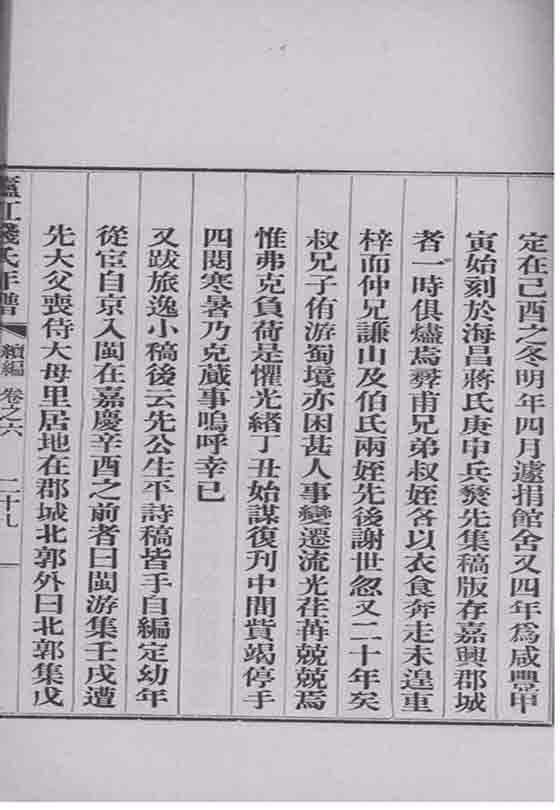 定在己酉之冬明年四月遽捐館舍又四年爲咸豐甲
寅始刻於海昌蔣氏庚申兵燹先集稿版存嘉興郡城
者一時俱燼焉彛甫兄弟叔姪各以衣食奔走未遑重
梓而仲兄謙山及伯氏兩姪先後謝世忽又二十年矣
叔兄子侑游蜀境亦困甚人事變遷流光荏苒兢兢焉
惟弗克負荷是懼光緒丁丑始謀復刊中間貲竭停手
四閱寒暑乃克蕆事嗚呼幸已
又跋旅逸小稿後云先公生平詩稿皆手自編定幼年
從宦自京入閩在嘉慶辛酉之前者曰閩游集壬戌遭
先大父喪侍大母里居地在郡城北郭外曰北郭集戊
廬江錢氏年譜 續編 卷之六 二十九